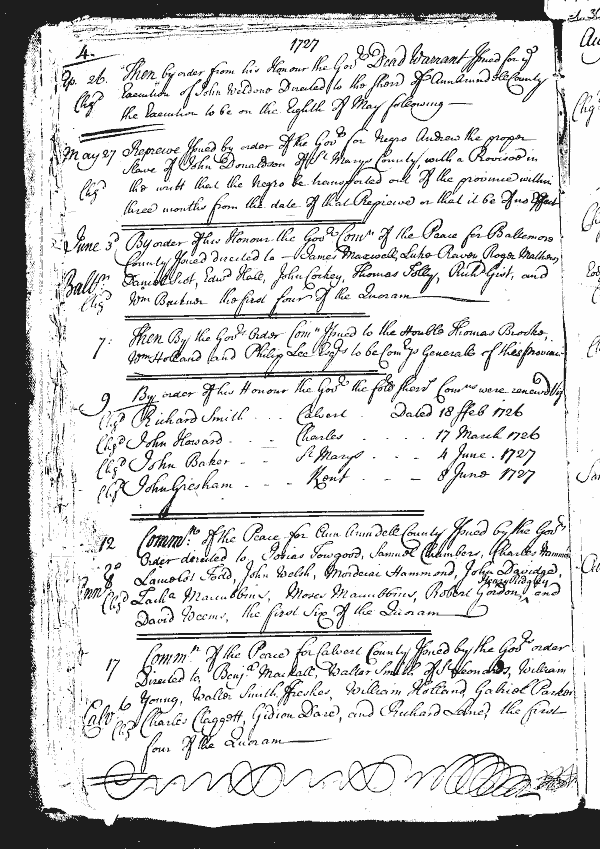 4. 1727
Ap. 26. Then by order from his Honour the Govr. Dead Warrant Issued for ye
Chgd Execution of John Verdone Directed to the Sherif of Annarundel County
the Execution to be on the Eighth of May following
May 27 Reprieve Issued by order of the Govr. for Negro Andrew the proper
Slave of John Donaldson of St. Marys County with a Provisoe in
Chgd the writt that the Negro be transported out of the province within
three months from the date of that Repreive or that it be of no Effect
June 3d By order of his Honour the Govr. Comn. of the Peace for Baltemore
County Issued directed to James Maxwell, Luke Raven Roger Mathews,
Balte. Daniel Scot, Edwd Hall, John Cockey, Thomas Tolly, Richd Gist, and
Chgd Wm the first four of the Quoram
7: Then By the Govrs Order Comn Issued to the Honble Thomas Brooke,
Wm Holland and Philip Lee Esqrs to be Comrys Generale of this Province
9 By order of his Honour the Govr. the foll. Sherrs Comns were renewed
Chgd Richard Smith - - - Calvert Dated 18 ffeb 1726
Chgd John Howard - - - Charles - - - 17 March 1726
Chgd John Baker - - - St Marys - - - 4 June 1727
Chgd John Gresham - - - Kent - - - 8 June 1727
12 Commn. of the Peace for Ann Arundell County Issued by the Govrs
Order directed to, Jonas Sowgood, Samuel Chambers, Charles Hammond
Lawolt Todd, John Welsh, Mordecai Hammond, John Davidge,
Henry Ridgely
Ann Chgd Zacha Maccubbins, Moses Maccubbins, Robert Gordon, and
David Weems, the first Six of the Quoram
17 Commn. of the Peace for Calvert County Issued by the Govrs order
Directed to, Benja Mackall, Walter Smith of St Leonards, William
Calv 6 Young, Walter Smith ffreshes, William Holland, Gabriel Parker
Chgd Charles Claggett, Gidion Dare, and Richard Lane, the first
four of the Quoram